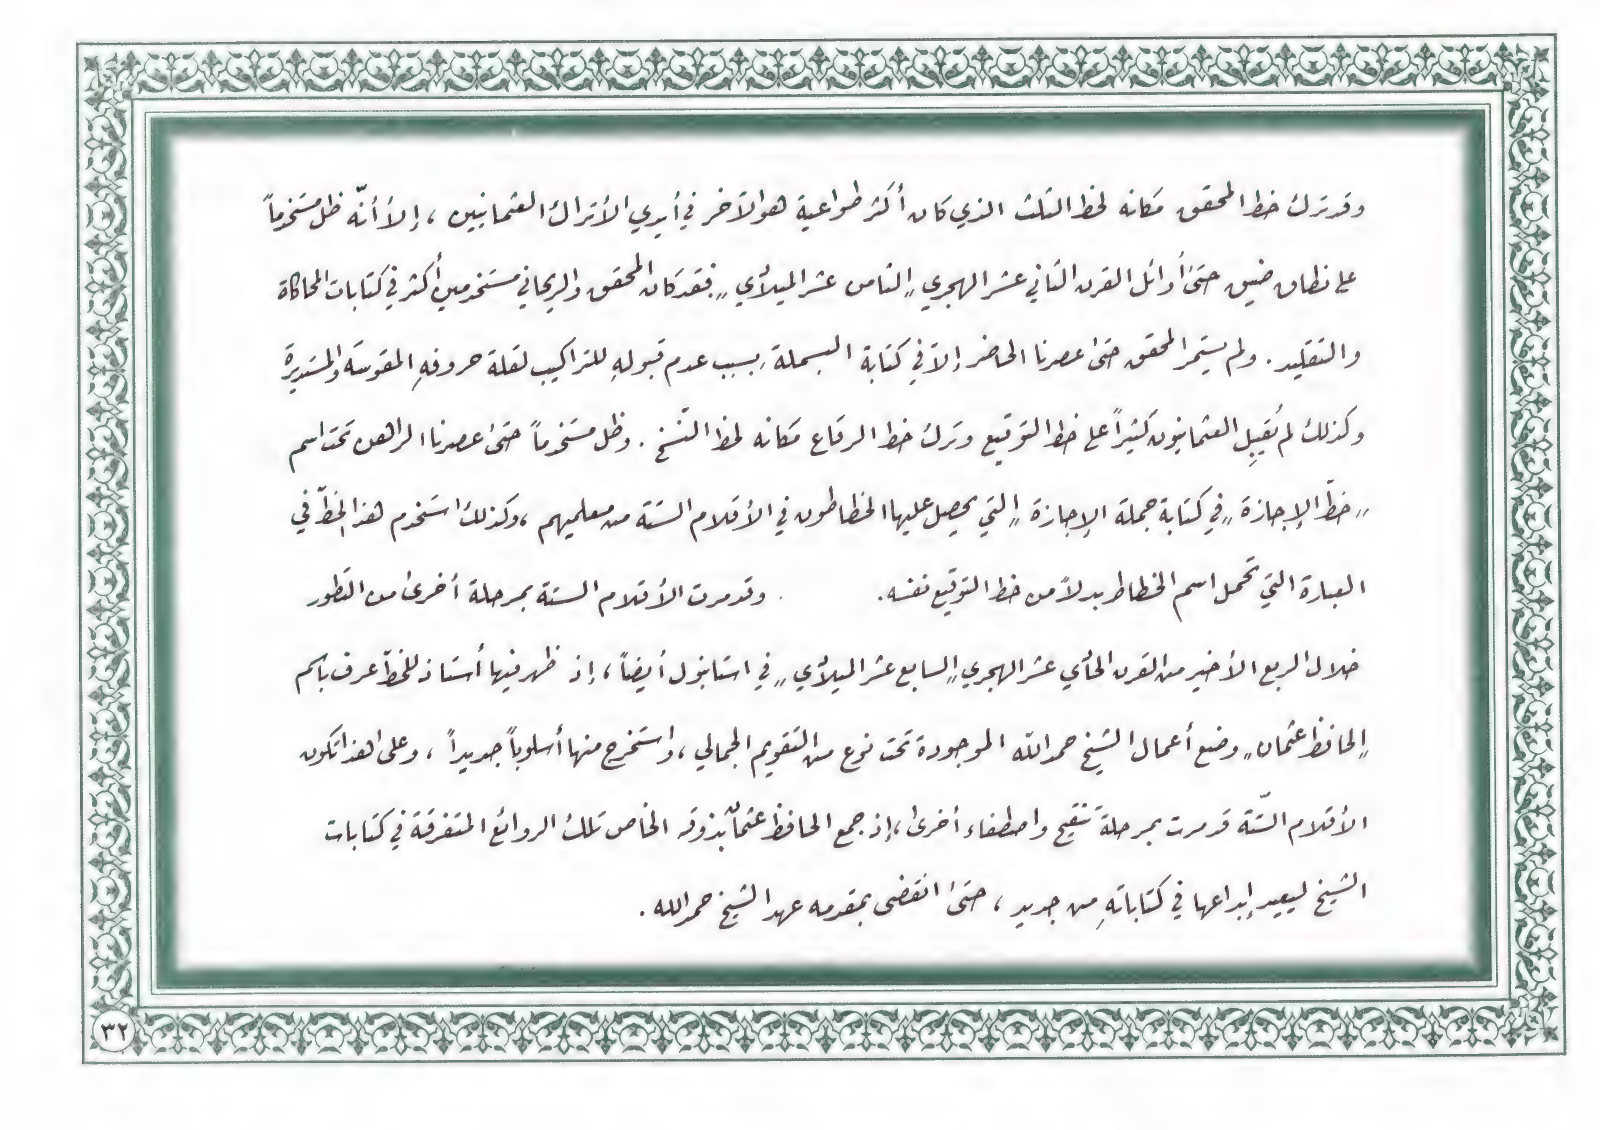 وقد ترك خط المحقق مكانه لخط الثلث الذي كان أكثر طواعية هو الآخر في أيدي الأتراك العثمانيين ، إلا أنّه ظل مستخدماً
على نطاق ضيق حتى أوائل القرن الثاني عشر الهجري "الثامن عشر الميلادي" فقد كان المحقق والريحاني مستخدمين أكثر في كتابات المحاكاة
والتقليد . ولم يستمر المحقق حتى عصرنا الحاضر إلا في كتابة البسملة بسبب عدم قبوله للتراكيب لقلة حروفه المقوسة والمستديرة
وكذلك لم يُقبِل العثمانيون كثيراً على خط التوقيع وترك خط الرقاع مكانه لخط النسخ . وظل مستخدماً حتى عصرنا الراهن تحت اسم
"خطّ الإجازة" في كتابة جملة الإجازة "التي يحصل عليها الخطاطون في الأقلام الستة من معلميهم ، وكذلك استخدم هذا الخطّ في
العبارة التي تحمل اسم الخطاط بدلاً من خط التوقيع نفسه. وقد مرت الأقلام الستة بمرحلة أخرى من التطور
خلال الربع الأخير من القرن الحادي عشر الهجري "السابع عشر الميلادي" في استانبول أيضاً ، إذ ظهر فيها أستاذ للخطّ عرف باسم
"الحافظ عثمان" وضع أعمال الشيخ حمد الله الموجودة تحت نوع من التقويم الجمالي ، واستخرج منها أسلوباً جديداً ، وعلى هذا تكون
الأقلام الستّة قد مرت بمرحلة تنقيح واصطفاء أخرى ، إذ جمع الحافظ عثمان بذوقه الخاص تلك الروائع المتفرقة في كتابات
الشيخ ليعيد إبداعها في كتاباته من جديد ، حتى انقضى بمقدمه عهد الشيخ حمد الله .
٣٢